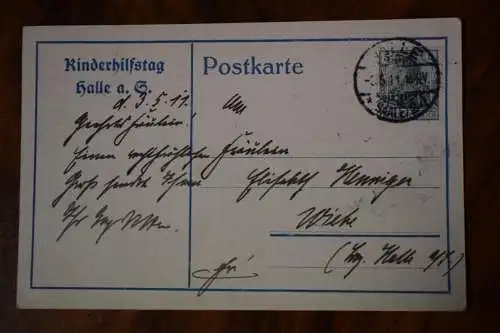 Kinderhilfstag
Halle a. S.
d. 3.5.11.
Geehrtes Fräulein!
Einen
Gruß sendet Ihnen
Ihr
Postkarte
An
Fräulein
Elisabeth Henniger
Wieke
(Bez. Halle a/S.)